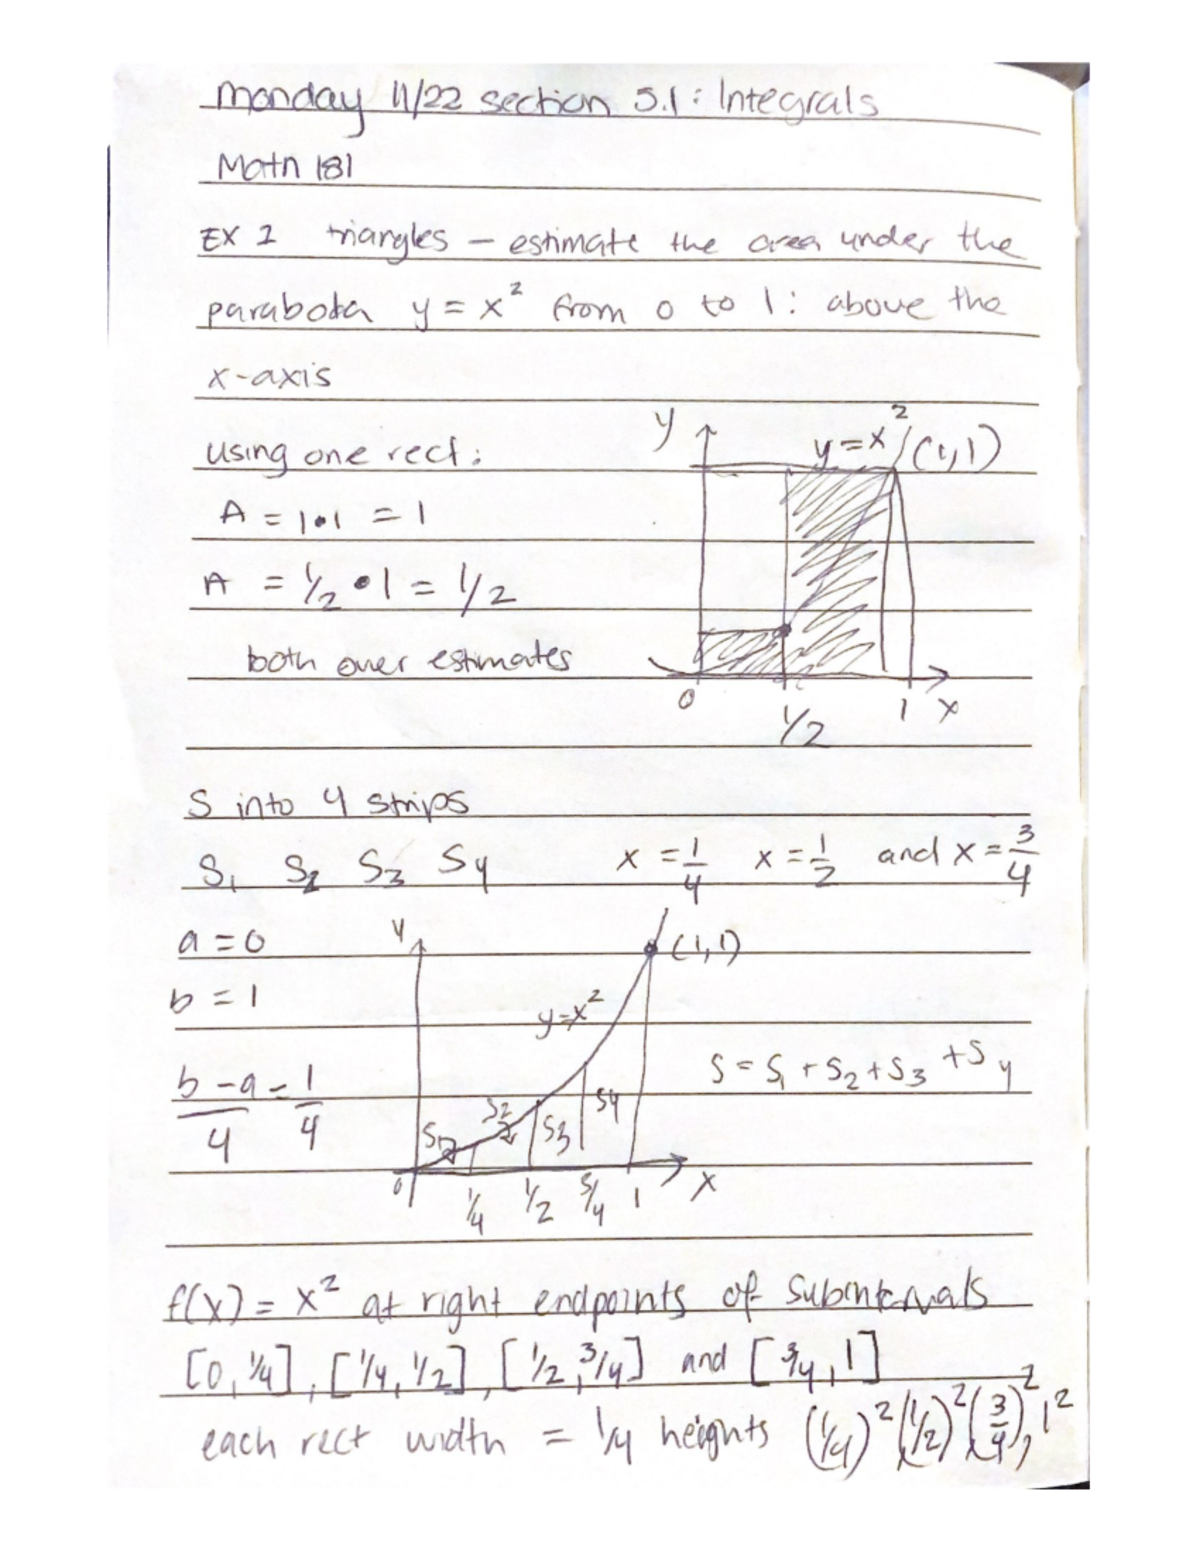 Monday 11/22 section 5.1: Integrals
Math 181
EX 1 triangles – estimate the area under the
parabola y = x² from 0 to 1: above the
x-axis
using one rect:
A = 1•1 = 1
A = 1/2 • 1 = 1/2
both over estimates
y
y=x² (1,1)
0 1/2 1 x
S into 4 strips
S₁ S₂ S₃ S₄ x = 1/4 x = 1/2 and x = 3/4
a = 0
b = 1
(b-a)/4 = 1/4
y
(1,1)
y=x²
S₁ S₂ S₃ S₄
0 1/4 1/2 3/4 1 x
S = S₁ + S₂ + S₃ + S₄
f(x) = x² at right endpoints of subintervals
[0, 1/4], [1/4, 1/2], [1/2, 3/4] and [3/4, 1]
each rect width = 1/4 heights (1/4)², (1/2)², (3/4)², 1²